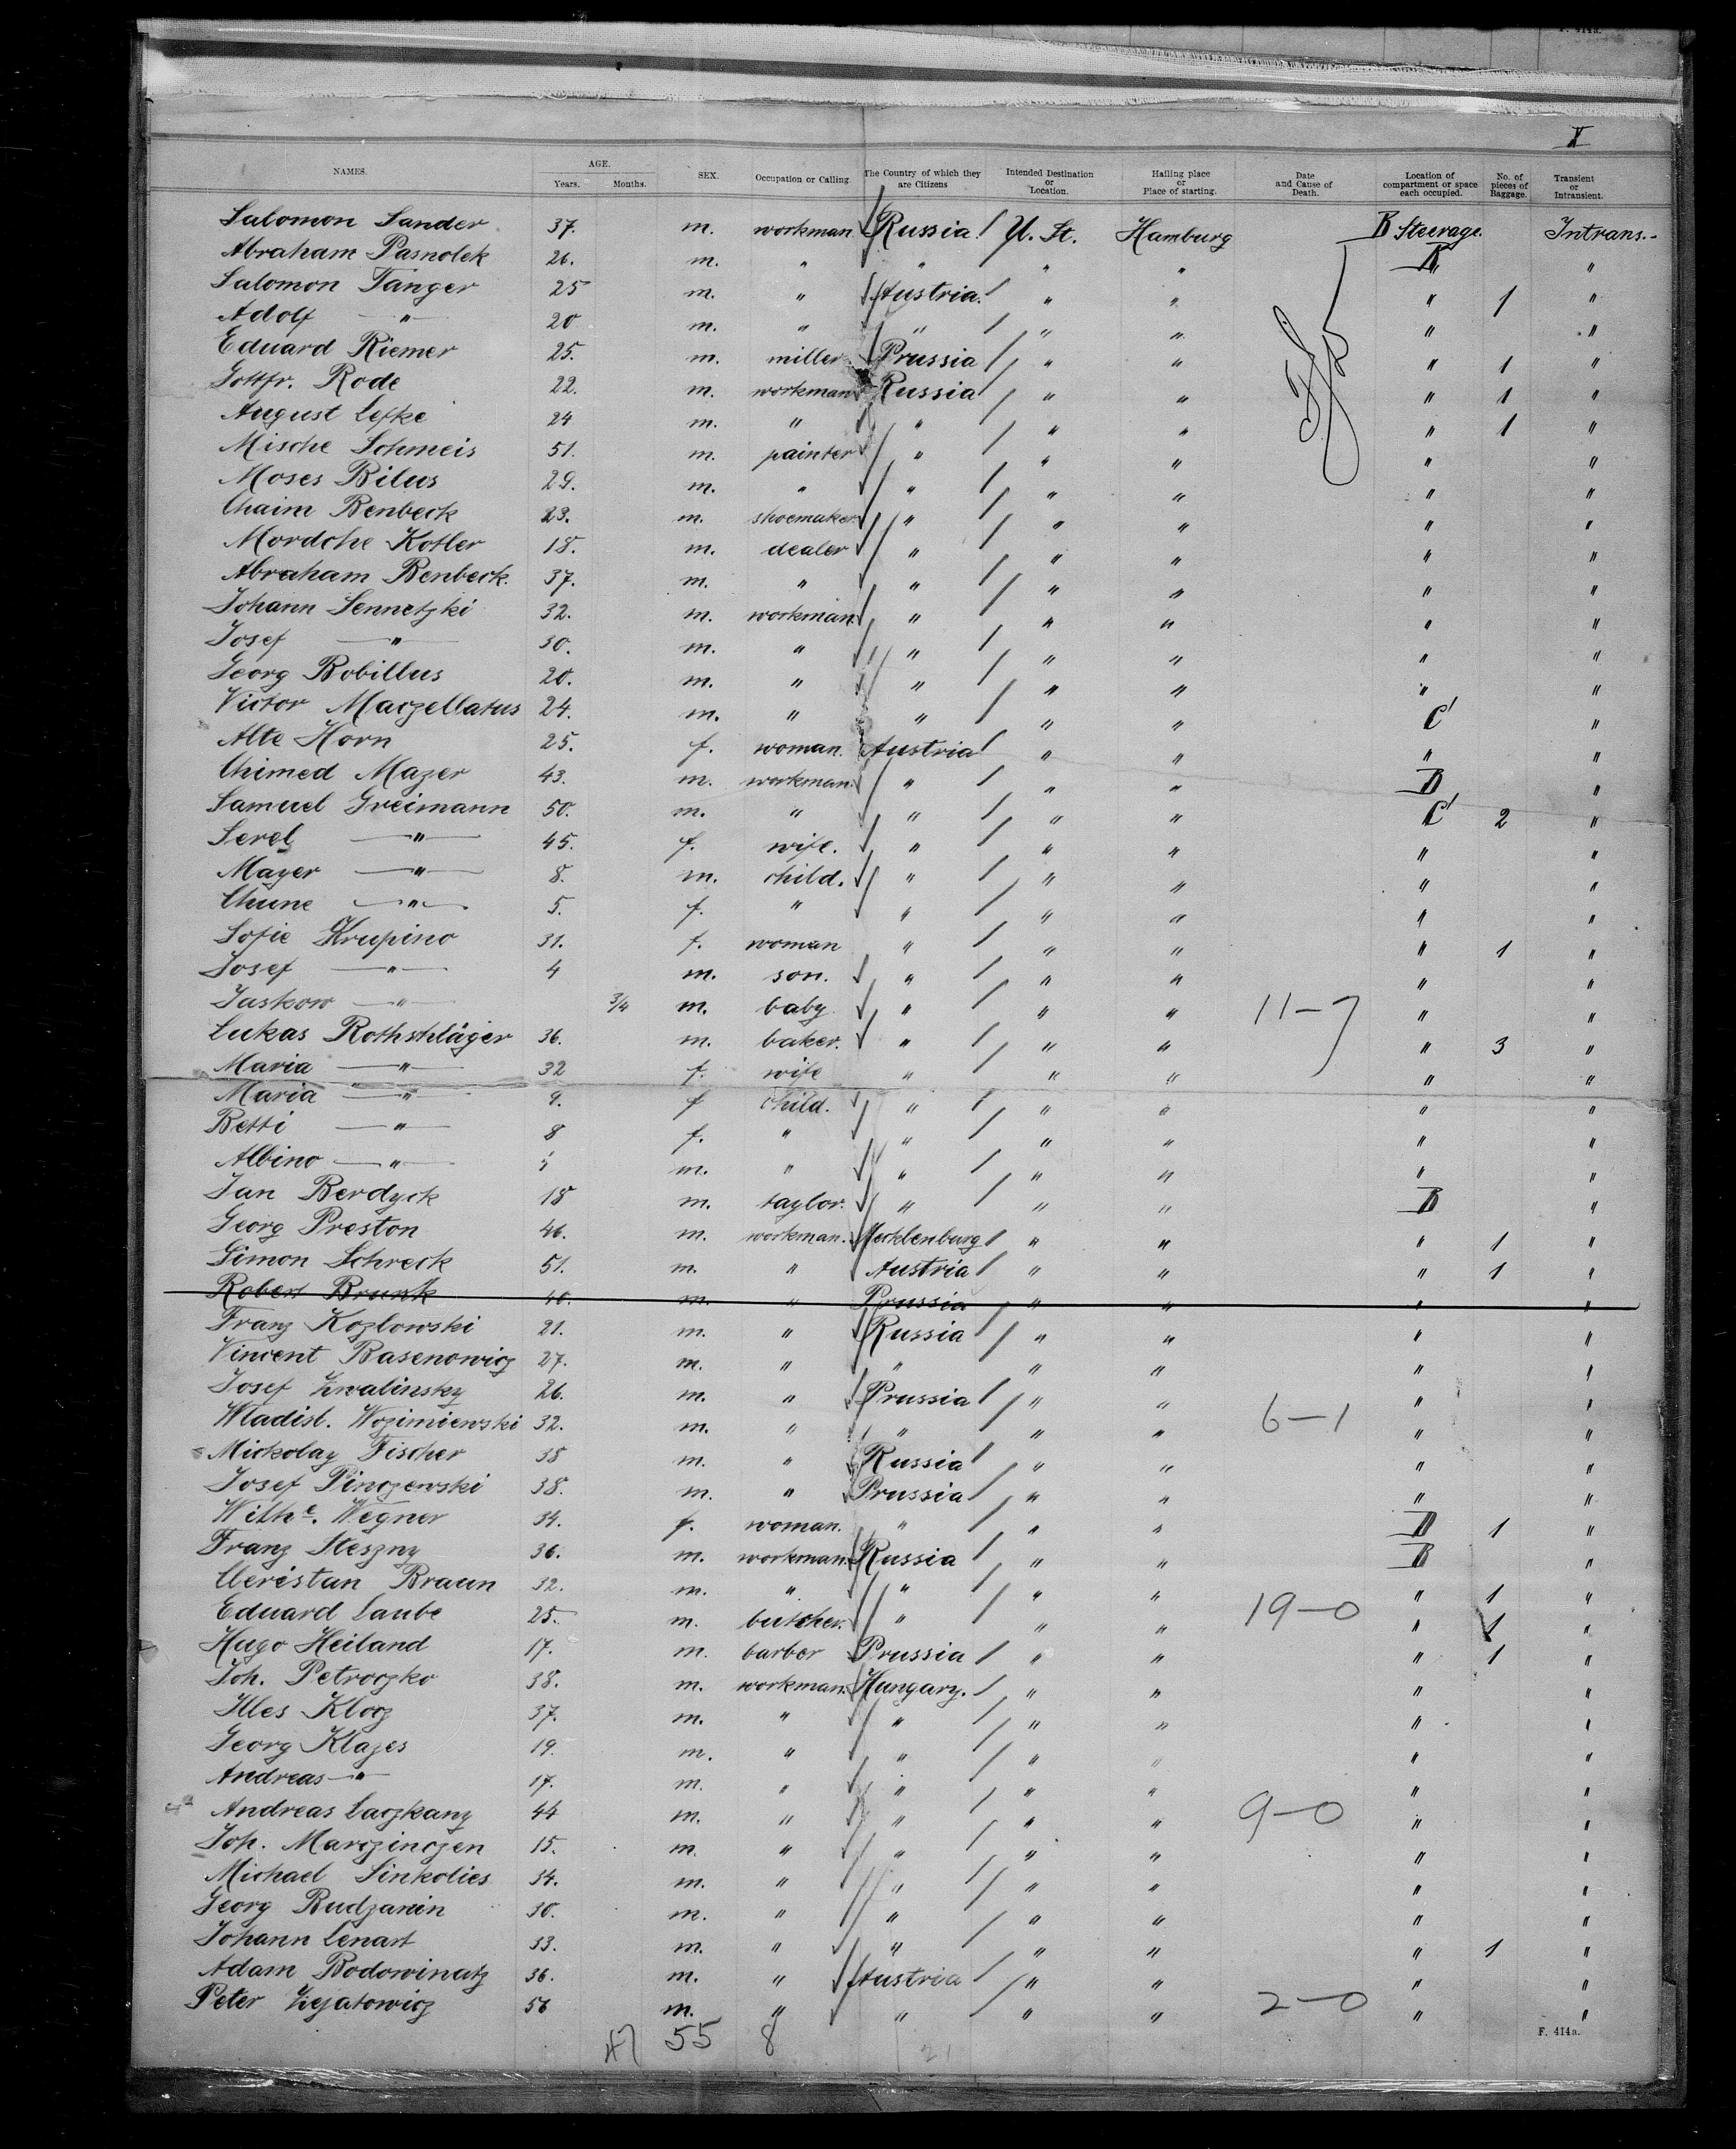 F. 414a.
V
NAMES. AGE. Years. Months. SEX. Occupation or Calling. The Country of which they are Citizens Intended Destination or Location. Hailing place or Place of starting. Date and Cause of Death. Location of compartment or space each occupied. No. of pieces of Baggage. Transient or Intransient.
Salomon Sander 37. m. workman. Russia U. St. Hamburg B Steerage. Intrans.
Abraham Pasnolek 26. m. " " " " B "
Salomon Tänger 25 m. " Austria. " " " 1 "
Adolf " 20 m. " " " " " "
Eduard Riemer 25. m. miller Prussia " " " 1 "
Gottfr. Rode 22. m. workman Russia " " " 1 "
August Lefke 24 m. " " " " " 1 "
Mische Schmeis 51. m. painter " " " " "
Moses Bilus 29. m. " " " " " "
Chaim Benbeck 23. m. shoemaker. " " " " "
Mordche Kotler 18. m. dealer " " " " "
Abraham Benbeck. 37. m. " " " " " "
Johann Sennetzki 32. m. workman. " " " " "
Josef " 30. m. " " " " " "
Georg Bobillus 20. m. " " " " " "
Victor Maczellatus 24. m. " " " " C "
Alte Horn 25. f. woman. Austria " " " "
Chimed Mazer 43. m. workman. " " " B "
Samuel Greimann 50. m. " " " " C 2 "
Serel " 45. f. wife. " " " " "
Mayer " 8. m. child. " " " " "
Chune " 5. f. " " " " " "
Sofie Krupino 31. f. woman " " " " 1 "
Josef " 4 m. son. " " " " "
Jaskow " 3/4 m. baby " " " 11-7 " "
Lukas Rothschläger 36. m. baker. " " " " 3 "
Maria " 32 f. wife " " " " "
Maria " 9. f child. " " " " "
Betti " 8 f. " " " " " "
Albino " m. " " " " " "
Jan Berdyck 18 m. taylor. " " " B "
Georg Preston 46. m. workman. Mecklenburg " " " 1 "
Simon Schreck 51. m. " Austria " " " 1 "
Robert Brunk 40. m. " Prussia " " " "
Franz Kozlowski 21. m. " Russia " " " "
Vincent Basenowicz 27. m. " " " " " "
Josef Zwalinsky 26. m. " Prussia " " " "
Wladisl. Wozimiewski 32. m. " " " " 6-1 " "
Mickolay Fischer 38 m. " Russia " " " "
Josef Pinczewski 38. m. " Prussia " " " "
Wilhe. Wegner 34. f. woman. " " " B 1 "
Franz Steszny 36. m. workman. Russia " " B "
Cleristan Braun 32. m. " " " " " 1 "
Eduard Laube 25. m. butcher. " " " 19-0 " 1 "
Hugo Heiland 17. m. barber Prussia " " " 1 "
Joh. Petroczko 38. m. workman. Hungary. " " " "
Illes Klocz 37. m. " " " " " "
Georg Klazes 19. m. " " " " " "
Andreas " 17. m. " " " " " "
Andreas Laczkany 44 m. " " " " 9-0 " "
Joh. Marczinczen 15. m. " " " " " "
Michael Sinkolies 34. m. " " " " " "
Georg Budzanin 30. m. " " " " " "
Johann Lenart 33. m. " " " " " 1 "
Adam Bodowinatz 36. m. " Austria " " " "
Peter Zejatowicz 56 m. " " " " 2-0 " "
47 55 8 21
F. 414a.